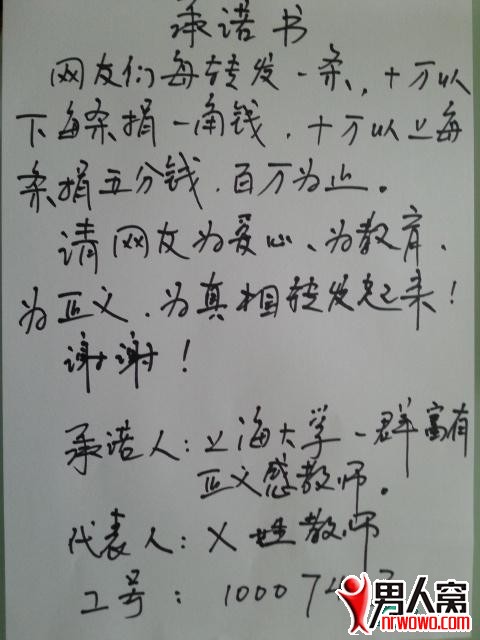 承诺书
网友们每转发一条,十万以
下每条捐一角钱,十万以上每
条捐五分钱,百万为止。
请网友为爱心、为教育、
为正义、为真相转发起来!
谢谢!
承诺人:上海大学一群富有
正义感教师。
代表人:X姓教师
工号:10007
男人窝
nrwowo.com